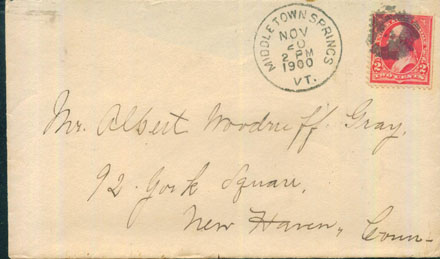 MIDDLETOWN SPRINGS
NOV
20
2 PM
1900
VT.
2 TWO CENTS 2
Mr. Albert Woodruff Gray,
92 York Square,
New Haven, Conn-